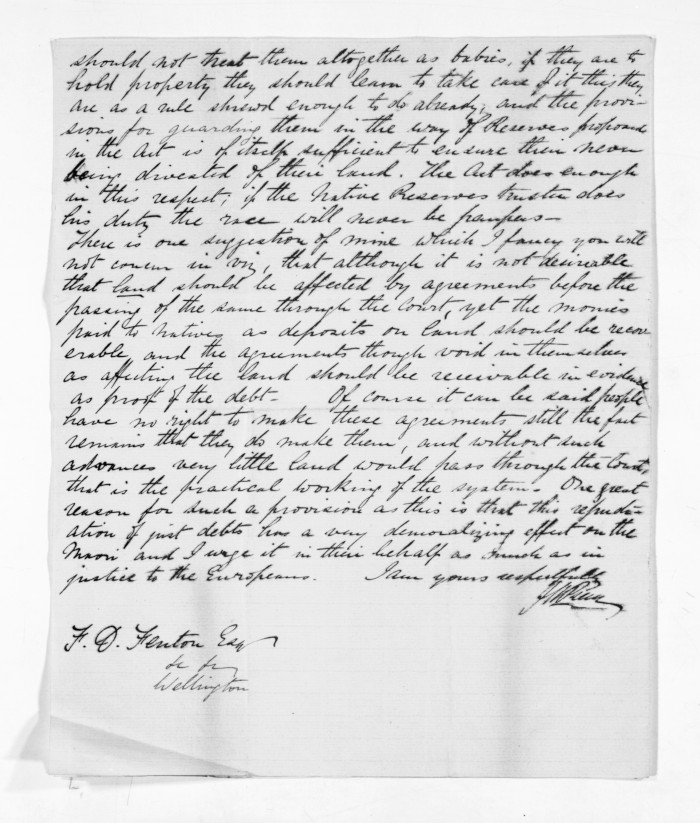 should not treat them altogether as babies, if they are to
hold property they should learn to take care of it this they
are as a rule shrewd enough to do already; and the provi-
sions for guarding them in the way of Reserves propounded
in the Act is of itself sufficient to ensure their never
being divested of their land. The Act does enough
in this respect; if the Native Reserves trustee does
his duty the race will never be paupers—
There is one suggestion of mine which I fancy you will
not concur in viz, that although it is not desirable
that land should be affected by agreements before the
passing of the same through the Court, yet the monies
paid to Natives as deposits on land should be recov-
erable, and the agreements though void in themselves
as affecting the land should be receivable in evidence
as proof of the debt— Of course it can be said people
have no right to make these agreements still the fact
remains that they do make them, and without such
advances very little land would pass through the Courts
that is the practical working of the system. One great
reason for such a provision as this is that this repudi-
ation of just debts has a very demoralizing effect on the
Maori and I urge it in their behalf as much as in
justice to the Europeans. I am yours respectfully
F. D. Fenton Esq
Wellington